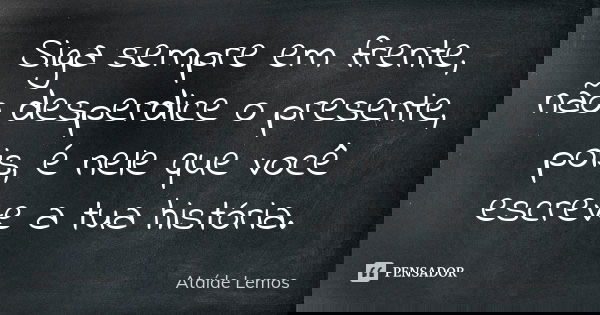 Siga sempre em frente,
não desperdice o presente,
pois, é nele que você
escreve a tua história.
Ataíde Lemos
PENSADOR